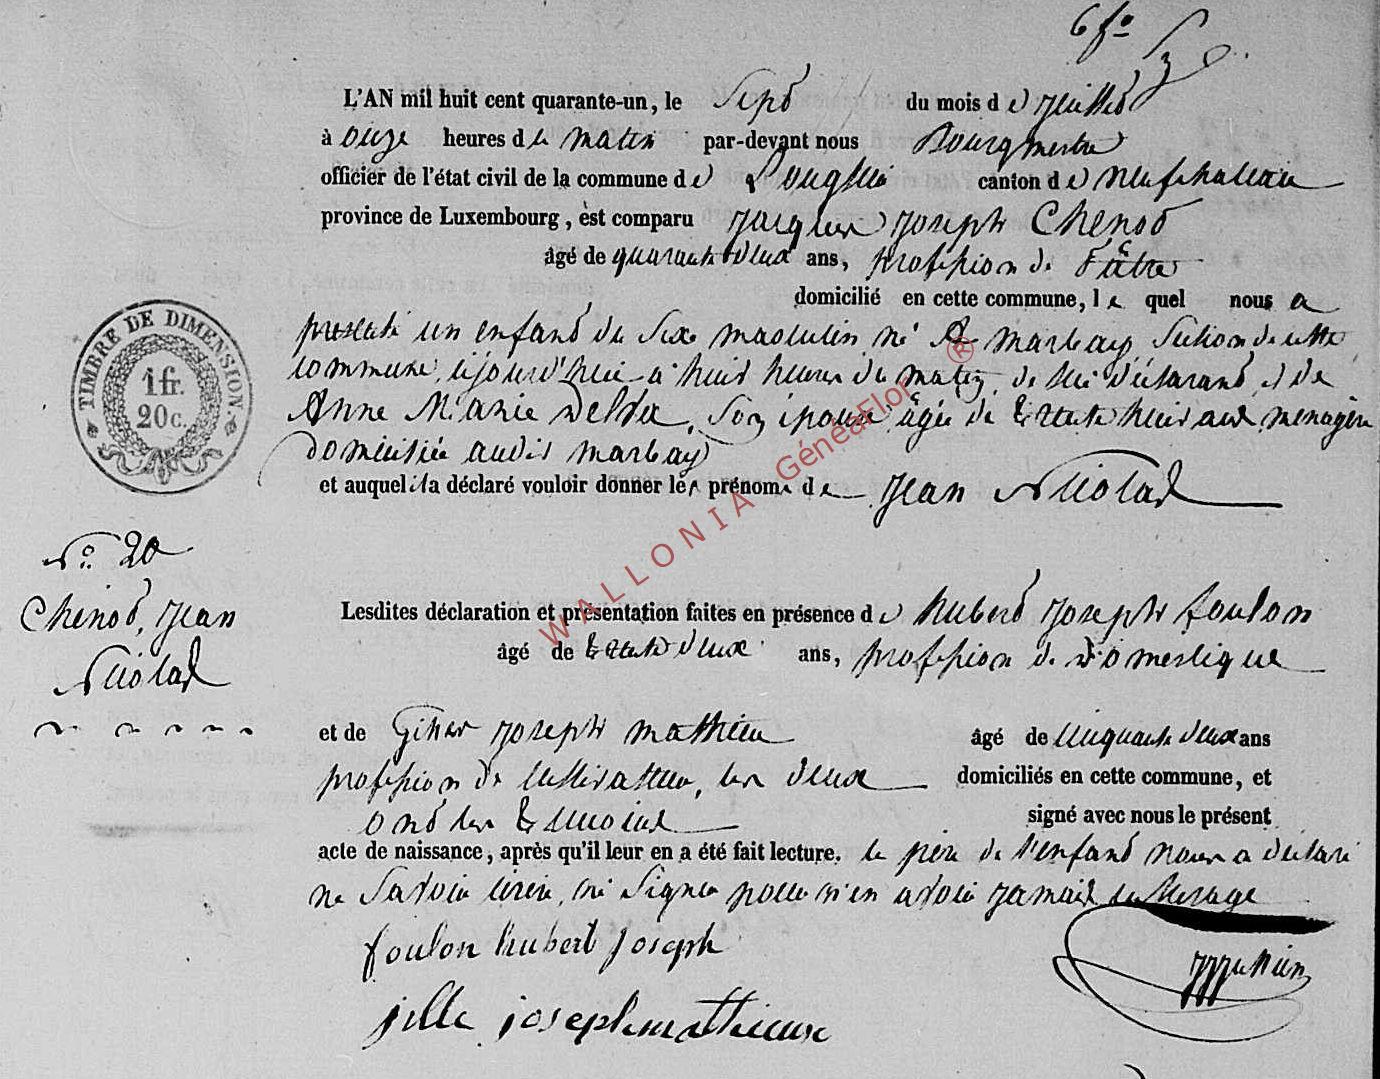 6 fo
L'AN mil huit cent quarante-un, le Sept du mois de juillet
à onze heures de matin par-devant nous Bourgmestre
officier de l'état civil de la commune de Longlier canton de neufchateau
province de Luxembourg, est comparu Jacques Joseph Chenot
âgé de quarante deux ans, profession de Pâtre
domicilié en cette commune, le quel nous a
presenté un enfant du sexe masculin né à marbay, section de cette
commune, cejourd'hui à huit heures du matin, de lui déclarant, et de
Anne Marie Delvx, son épouse, âgée de trente huit ans menagère
domiciliée audit marbay
et auquel il a déclaré vouloir donner les prénoms de Jean Nicolas
TIMBRE DE DIMENSION.
1 fr.
20c.
No. 20
Chenot, Jean
Nicolas
Lesdites déclaration et présentation faites en présence de hubert Joseph foulon
âgé de trente deux ans, profession de Domestique
et de Giller Joseph mathieu âgé de cinquante deux ans
profession de cultivateur, les deux domiciliés en cette commune, et
ont les témoins signé avec nous le présent
acte de naissance, après qu'il leur en a été fait lecture. le père de l'enfant nous a déclaré
ne savoir écrire, ni signer pour n'en avoir jamais eu l'usage
foulon hubert joseph
jille joseph mathieux
WALLONIA GénéaFlor ®